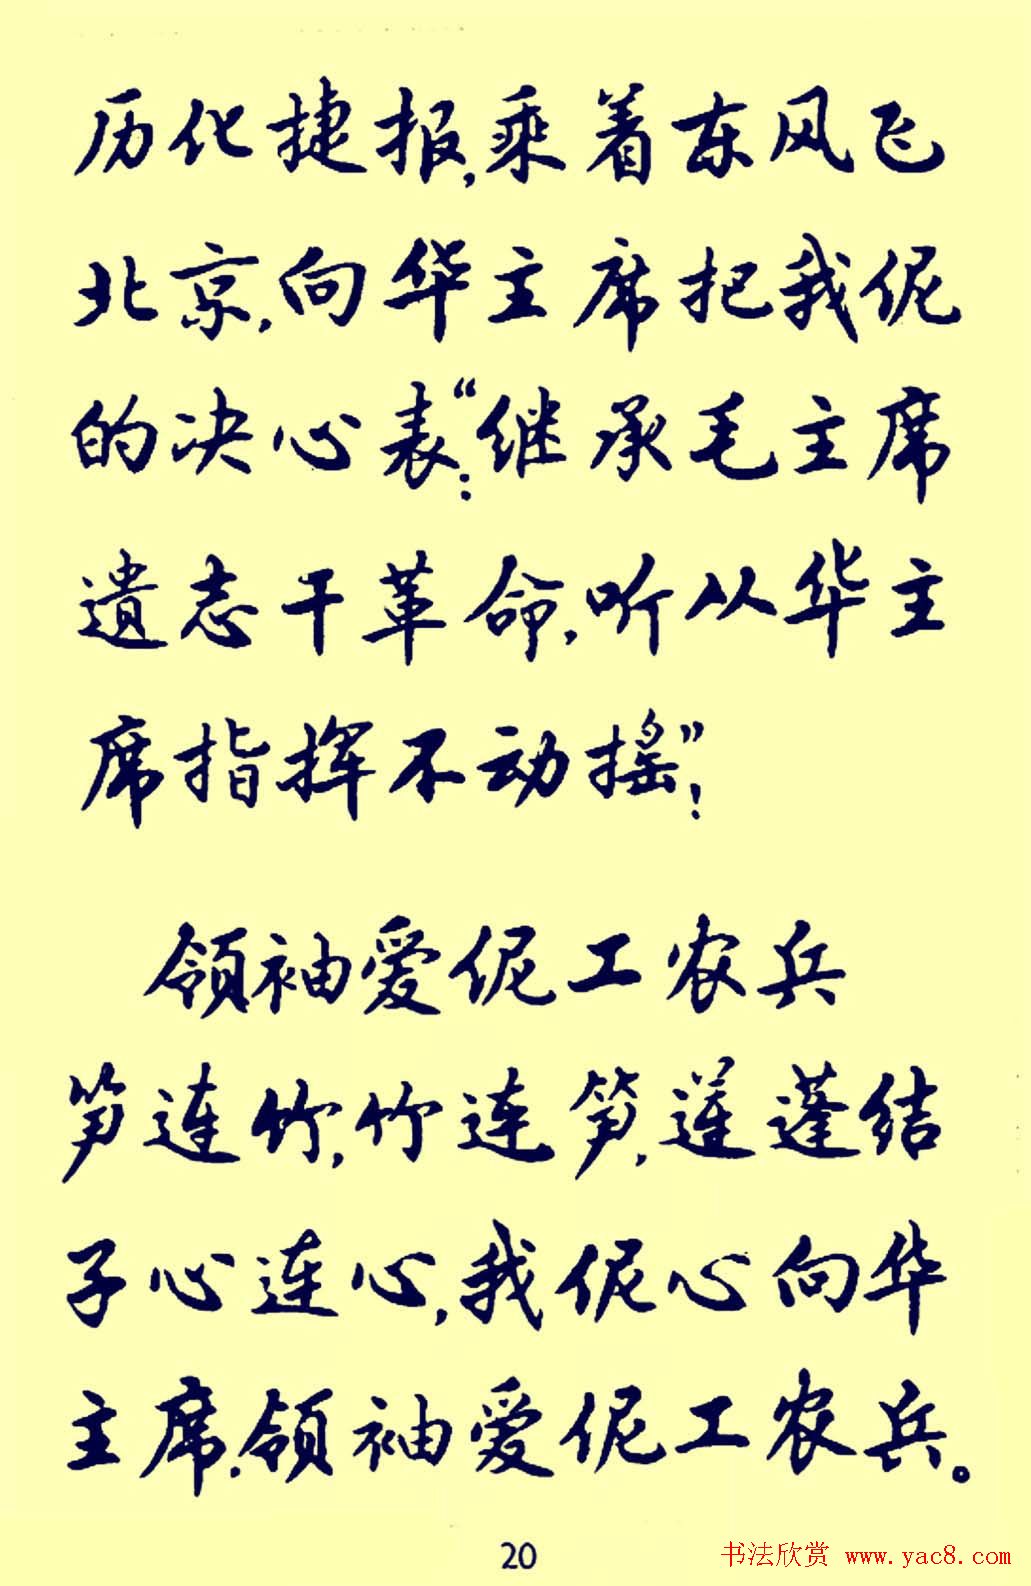 历化捷报,乘着东风飞
北京,向华主席把我伲
的决心表:“继承毛主席
遗志干革命,听从华主
席指挥不动摇”!
领袖爱伲工农兵
笋连竹,竹连笋,莲蓬结
子心连心,我伲心向华
主席,领袖爱伲工农兵。
20
书法欣赏 www.yac8.com